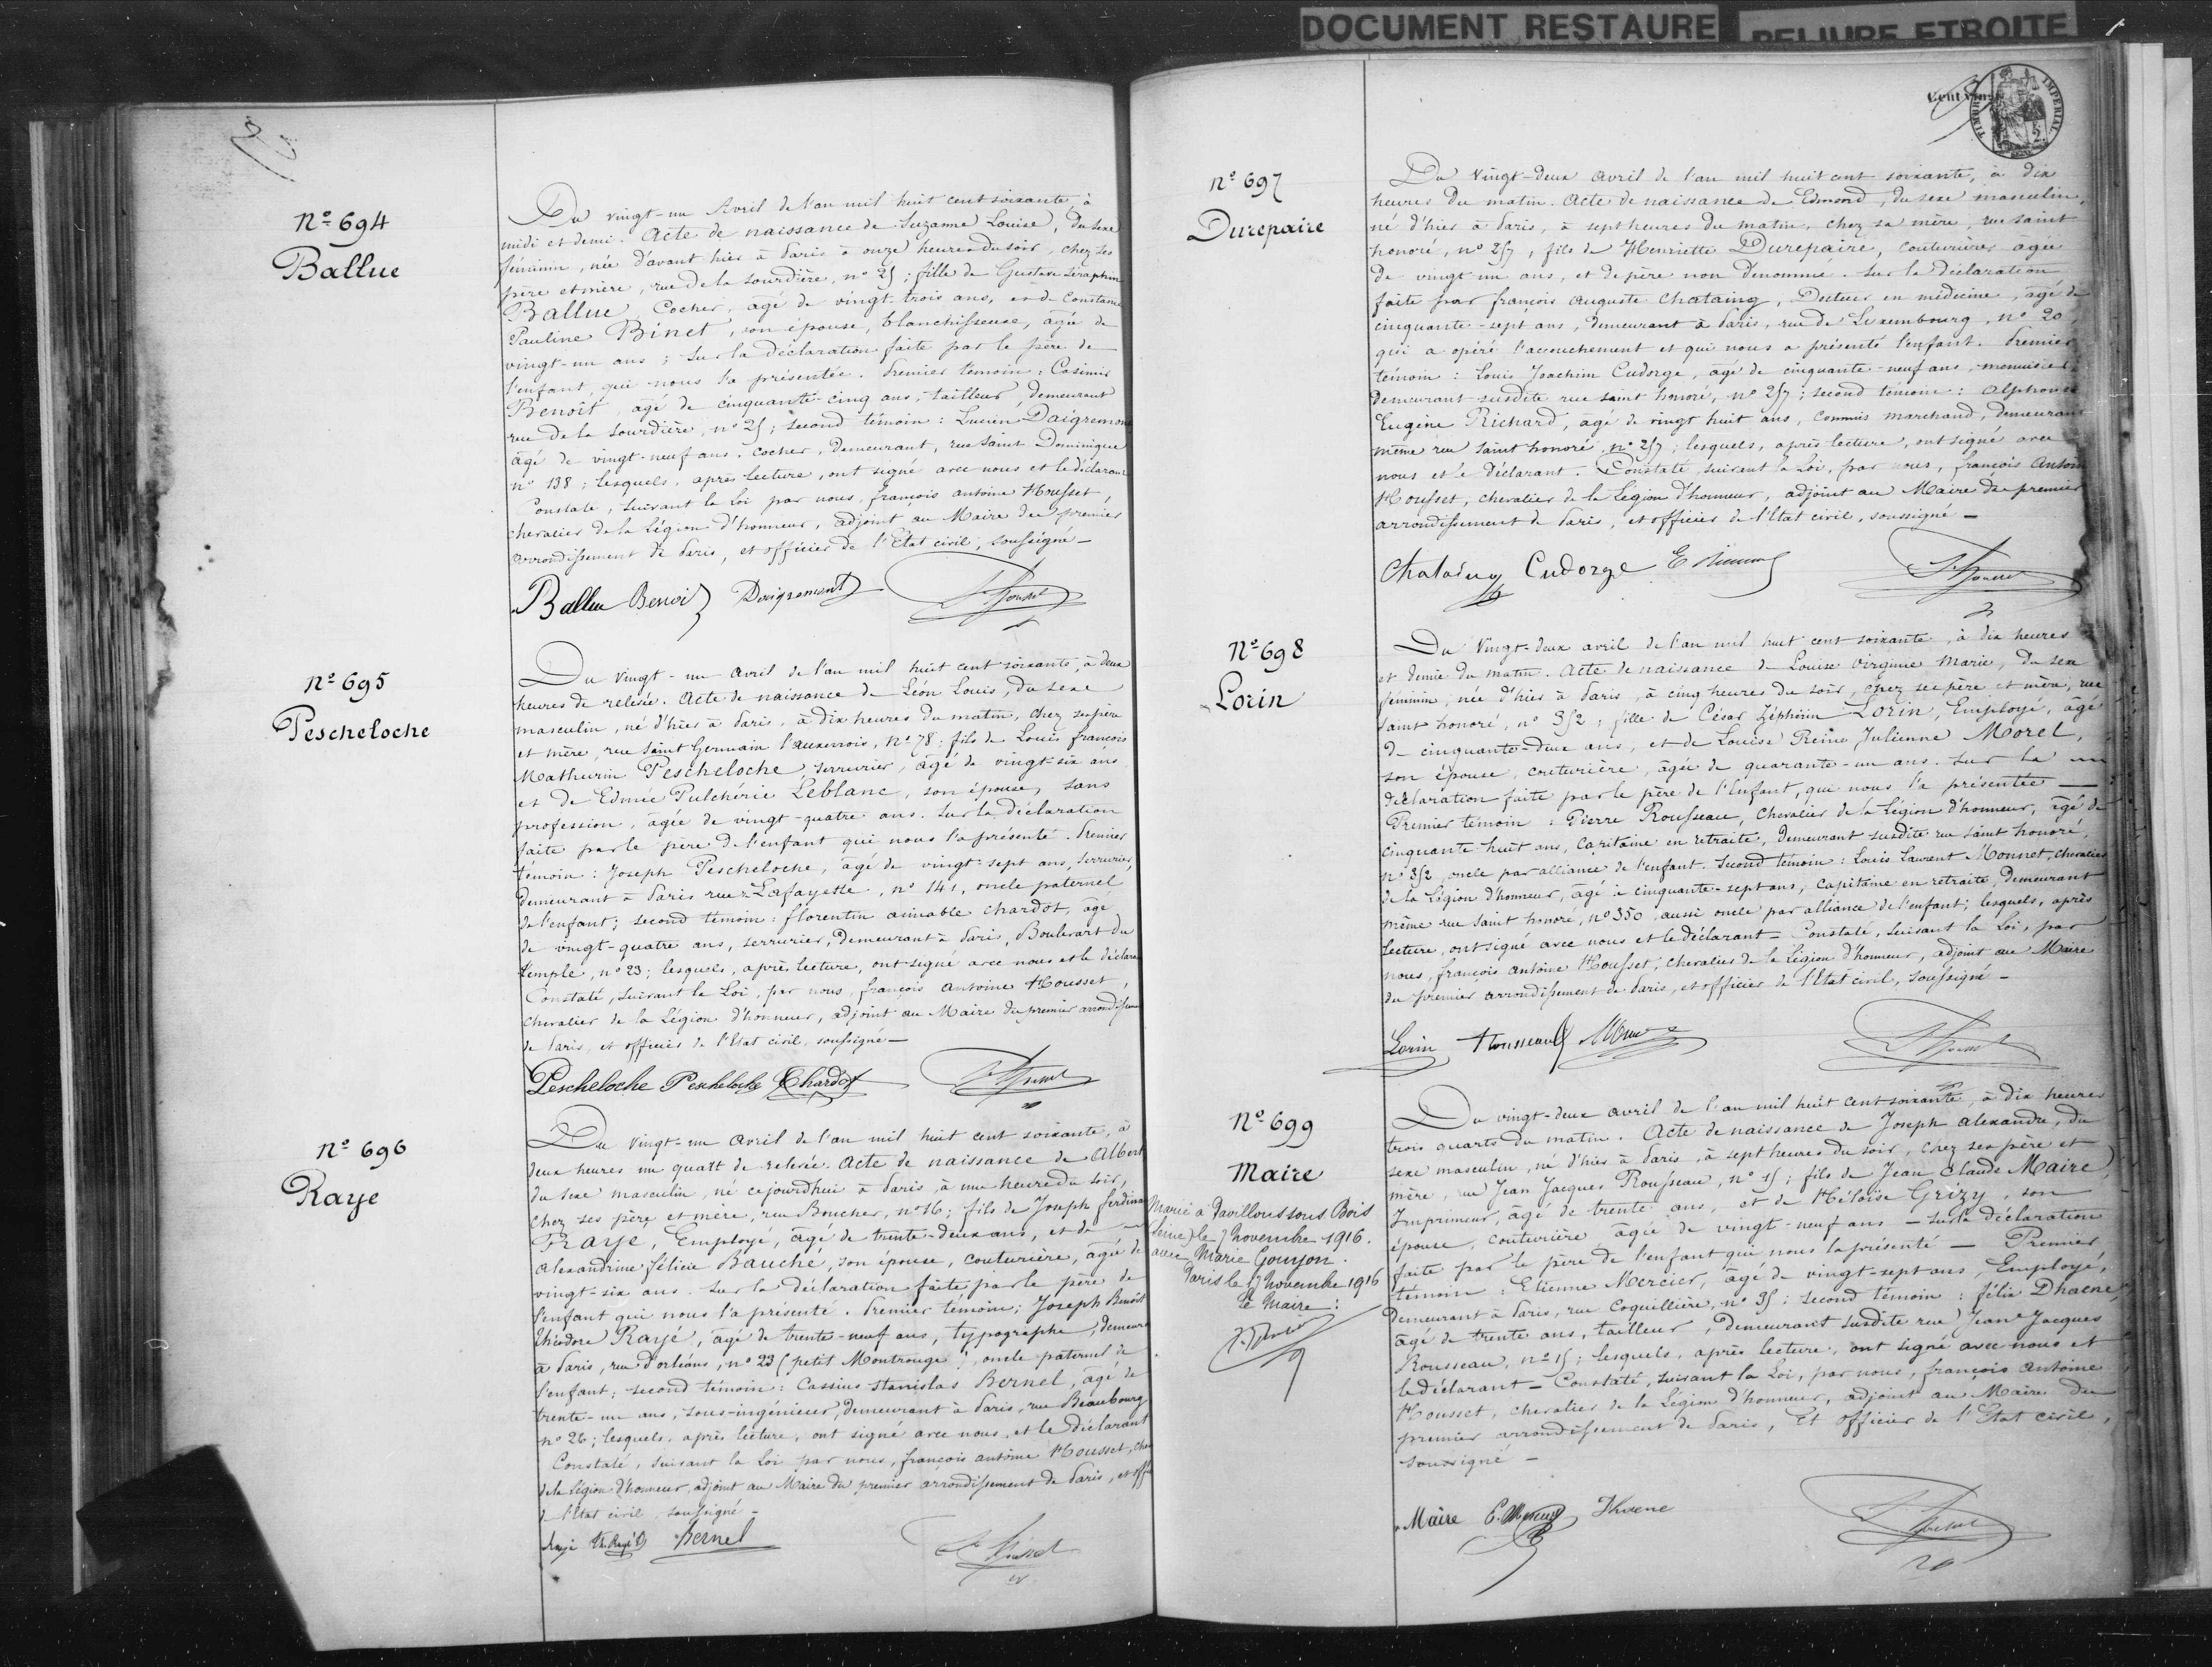 DOCUMENT RESTAURE
RELIURE ETROITE
Nº 694
Ballue
Du vingt-un Avril de l'an mil huit cent soixante, à
midi et demi. Acte de naissance de Suzanne Louise, du sexe
féminin, née d'avant hier à Paris à onze heures du soir, chez ses
père et mère, rue de la Sourdière, nº 25; fille de Gustave Séraphin
Ballue, Cocher, âgé de vingt-trois ans, et de Constance
Pauline Binet, son épouse, blanchisseuse, âgée de
vingt-un ans; Sur la déclaration faite par le père de
l'enfant, qui nous l'a présentée. Premier témoin: Casimir
Benoît, âgé de cinquante-cinq ans, tailleur, demeurant
rue de la Sourdière, nº 25; second témoin: Lucien Daigremont
âgé de vingt-neuf ans, cocher, demeurant, rue Saint Dominique
nº 138; lesquels, après lecture, ont signé avec nous et le déclarant
Constaté, suivant la loi par nous, françois antoine Housset,
chevalier de la Légion d'honneur, adjoint au Maire du premier
arrondissement de Paris, et officier de l'Etat civil, soussigné —
Ballue Benoit Daigremont
Nº 695
Pescheloche
Du vingt-un Avril de l'an mil huit cent soixante, à deux
heures de relevée. Acte de naissance de Léon Louis, du sexe
masculin, né d'hier à Paris, à dix heures du matin, chez ses père
et mère, rue Saint Germain l'auxerrois, nº 78; fils de Louis françois
Mathurin Pescheloche serrurier, âgé de vingt-six ans
et de Edmée Pulchérie Leblanc, son épouse, sans
profession, âgée de vingt-quatre ans. Sur la déclaration
faite par le père de l'enfant qui nous l'a présenté. Premier
témoin: Joseph Pescheloche, âgé de vingt-sept ans, serrurier,
demeurant à Paris rue Lafayette, nº 141, oncle paternel
de l'enfant; second témoin: florentin aimable chardot, âgé
de vingt-quatre ans, serrurier, demeurant à Paris, Boulevart du
temple, nº 23; lesquels, après lecture, ont signé avec nous et le déclarant
Constaté, suivant la Loi, par nous, françois antoine Housset,
chevalier de la Légion d'honneur, adjoint au Maire du premier arrondissement
de Paris, et officier de l'Etat civil, soussigné —
Pescheloche Pescheloche Chardot
Nº 696
Raye
Du vingt-un avril de l'an mil huit cent soixante, à
deux heures un quatt de relevée. Acte de naissance de Albert
du sexe masculin, né cejourdhui à Paris, à une heure du soir,
chez ses père et mère, rue Boucher, nº 16; fils de Joseph ferdinand
Raye, Employé, âgé de trente-deux ans, et de
alexandrine félicie Bauché, son épouse, couturière, âgée de
vingt-six ans. Sur la déclaration faite par le père de
l'enfant qui nous l'a présenté. Premier témoin: Joseph Benoît
théodore Rayé, âgé de trente-neuf ans, typographe, demeurant
à Paris, rue d'orléans, nº 23 (petit Montrouge), oncle paternel de
l'enfant; second témoin: Cassius Stanislas Bernel, âgé de
trente-un ans, sous-ingénieur, demeurant à Paris, rue Beaubourg
nº 26; lesquels, après lecture, ont signé avec nous, et le déclarant
Constaté, suivant la Loi par nous, françois antoine Housset, chev
de la Légion d'honneur, adjoint au Maire du premier arrondissement de Paris, et offi
de l'Etat civil soussigné —
Raye Th. Rayé Bernel
Cent vingt
TIMBRE IMPERIAL
Nº 697
Durepaire
Du vingt-deux avril de l'an mil huit cent soixante, à dix
heures du matin. Acte de naissance de Edmond, du sexe masculin,
né d'hier à Paris, à sept heures du matin, chez sa mère, rue saint
honoré, nº 257, fils de Henriette Durepaire, couturière âgée
de vingt-un ans, et de père non dénommé. Sur la déclaration
faite par françois auguste Chataing, Docteur en médecine, âgé de
cinquante-sept ans, demeurant à Paris, rue de Luxembourg, nº 20,
qui a opéré l'accouchement et qui nous a présenté l'enfant. Premier
témoin: Louis Joachim Cudorge, âgé de cinquante-neuf ans, menuisier,
demeurant susdite rue saint honoré, nº 257; second témoin: alphonse
Eugène Richard, âgé de vingt huit ans, commis marchand, demeurant
même rue saint honoré, nº 257; lesquels, après lecture, ont signé avec
nous et le déclarant. Constaté, suivant la Loi, par nous, françois antoine
Housset, chevalier de la Légion d'honneur, adjoint au Maire du premier
arrondissement de Paris, et officier de l'Etat civil, soussigné —
Chataing Cudorge
Nº 698
Lorin
Du Vingt-deux avril de l'an mil huit cent soixante, à dix heures
et demie du matin. Acte de naissance de Louise Virginie Marie, du sexe
féminin, née d'hier à Paris, à cinq heures du soir, chez ses père et mère, rue
saint honoré, nº 352; fille de César Zéphirin Lorin, Employé, âgé
de cinquante-deux ans, et de Louise Reine Julienne Morel,
son épouse, couturière, âgée de quarante-un ans. Sur la
déclaration faite par le père de l'Enfant, qui nous l'a présentée —
Premier témoin: Pierre Rousseau, Chevalier de la Légion d'honneur, âgé de
cinquante-huit ans, capitaine en retraite, demeurant susdite rue saint honoré,
nº 352, oncle par alliance de l'enfant. Second témoin: Louis Laurent Monnet, chevalier
de la Légion d'honneur, âgé de cinquante-sept ans, capitaine en retraite, demeurant
même rue saint honoré, nº 350, aussi oncle par alliance de l'enfant; lesquels, après
lecture, ont signé avec nous et le déclarant — Constaté, suivant la Loi, par
nous, françois antoine Housset, chevalier de la Légion d'honneur, adjoint au Maire
du premier arrondissement de Paris, et officier de l'Etat civil, soussigné —
Lorin Rousseau
Nº 699
Maire
Marié à Pavillons sous Bois
(Seine) le 7 novembre 1916.
avec Marie Goujon.
Paris le 17 novembre 1916
le Maire:
Du vingt-deux avril de l'an mil huit cent soixante, à dix heures
trois quarts du matin. Acte de naissance de Joseph alexandre, du
sexe masculin, né d'hier à Paris, à sept heures du soir, chez ses père et
mère, rue Jean Jacques Rousseau, nº 15; fils de Jean Claude Maire,
Imprimeur, âgé de trente ans, et de Héloïse Grizy, son
épouse, couturière, âgée de vingt-neuf ans — Sur la déclaration
faite par le père de l'enfant qui nous l'a présenté — Premier
témoin: Etienne Mercier, âgé de vingt-sept ans, Employé,
demeurant à Paris, rue Coquillière, nº 35; second témoin: félix Dhaene,
âgé de trente ans, tailleur, demeurant susdite rue Jean Jacques
Rousseau, nº 15; lesquels, après lecture, ont signé avec nous et
le déclarant — Constaté, suivant la Loi, par nous, françois antoine
Housset, chevalier de la Légion d'honneur, adjoint au Maire du
premier arrondissement de Paris, Et officier de l'Etat civil,
soussigné —
Maire E. Mercier Dhaene